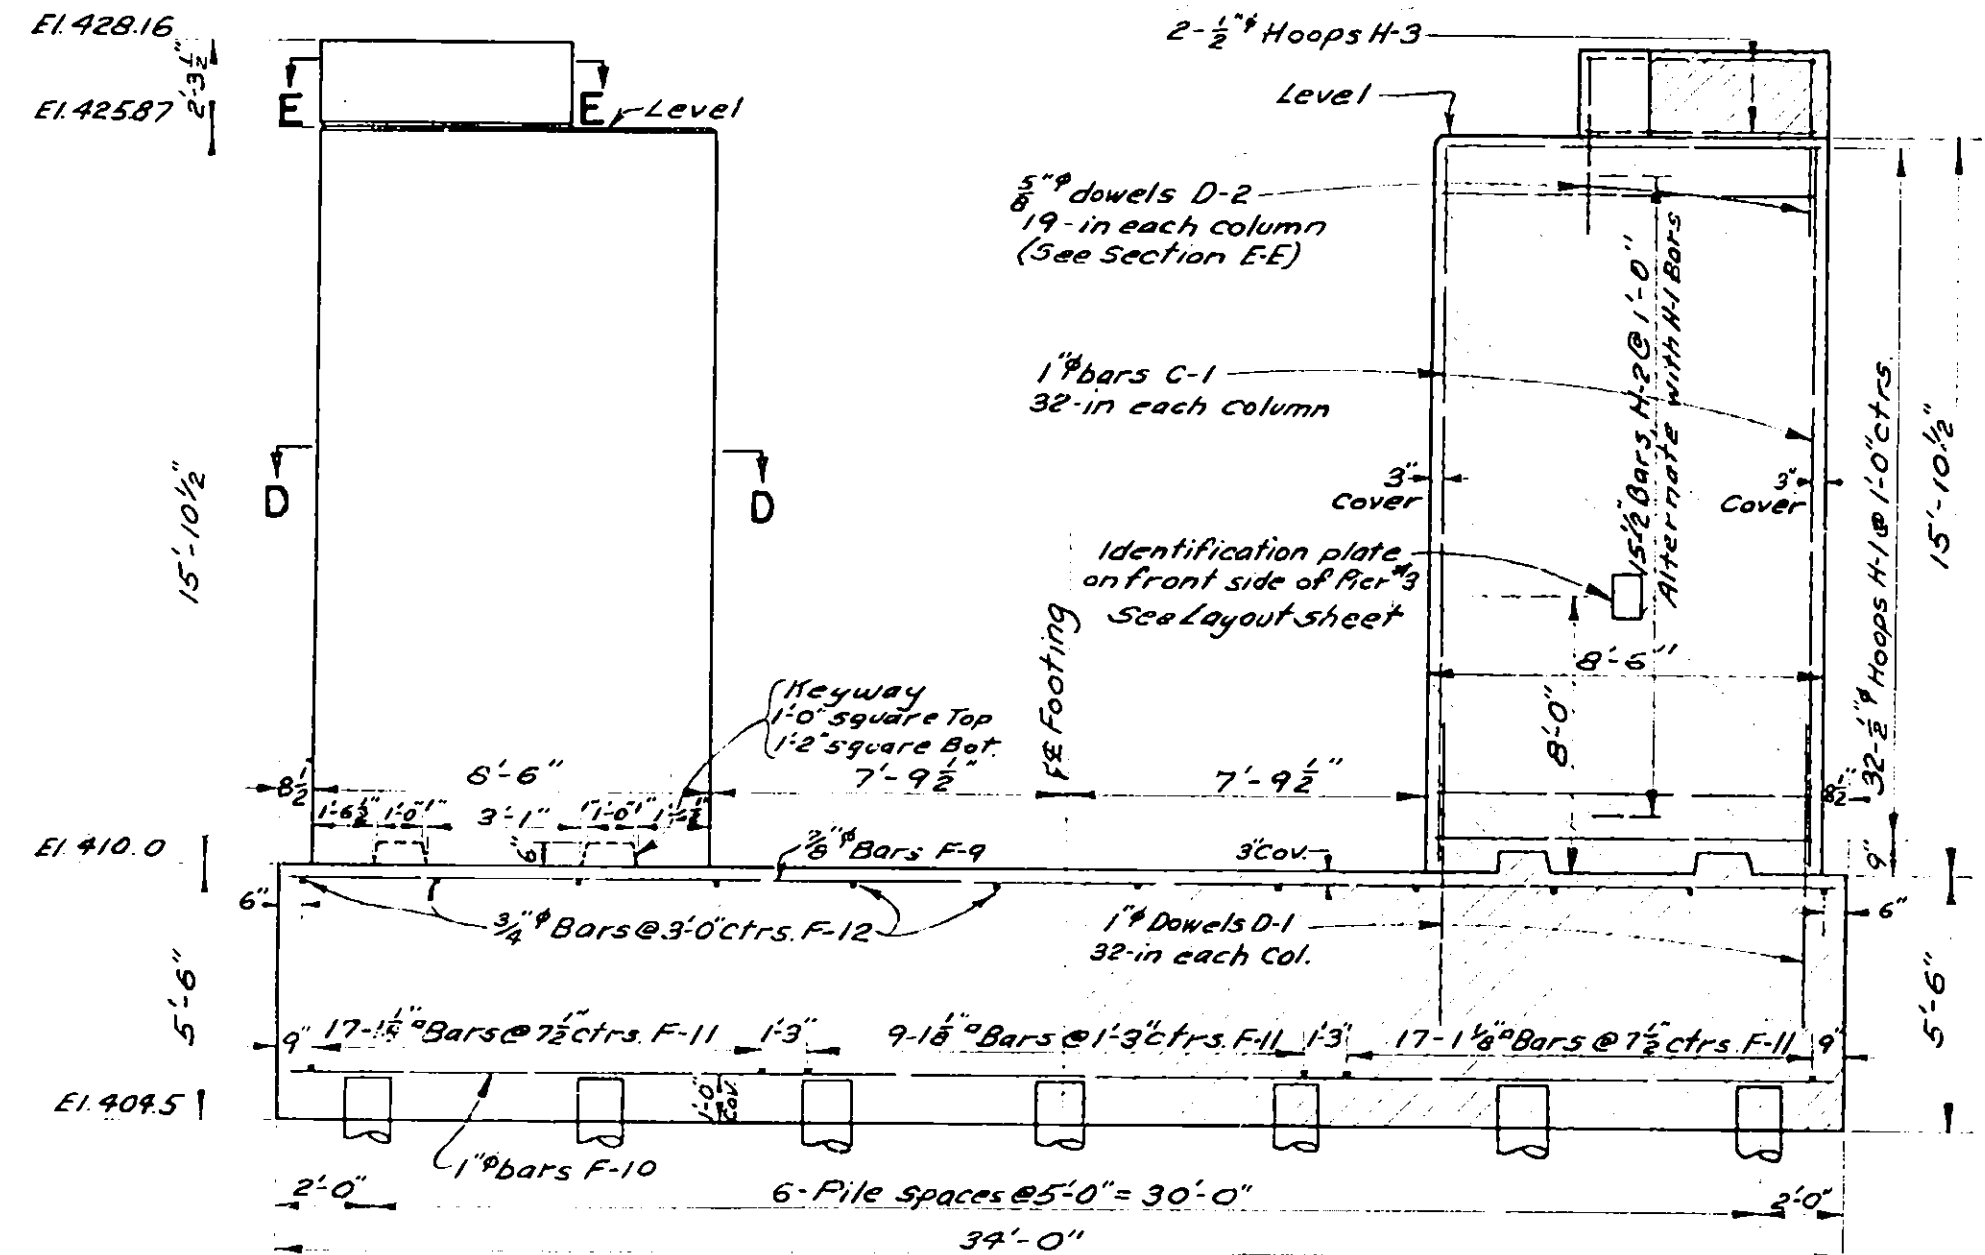 El. 428.16
2'-3 1/2"
El. 425.87
E E
Level
2-1/2"φ Hoops H-3
Level
5/8"φ dowels D-2
19-in each column
(See Section E-E)
1"φ bars C-1
32-in each column
3"
Cover
3"
Cover
D D
15'-10 1/2"
Identification plate
on front side of Pier #3
See Layout sheet
15 1/2" Bars, H-2 @ 1'-0"
Alternate with H-1 Bars
32-1/2"φ Hoops H-1 @ 1'-0" ctrs.
15'-10 1/2"
8'-6"
8'-0"
℄ Footing
Keyway
1'-0" square Top
1'-2" square Bot.
8 1/2"
7'-9 1/2"
7'-9 1/2"
8 1/2"
1'-6 1/2" 1'-0" 1" 3'-1" 1" 1'-0" 1"
6"
9"
El. 410.0
7/8"φ Bars F-9
3" Cov.
6"
3/4"φ Bars @ 3'-0" ctrs. F-12
1"φ Dowels D-1
32-in each Col.
6"
5'-6"
5'-6"
9" Bars @ 7 1/2" ctrs. F-11 1'-3" 9-1 1/8"□ Bars @ 1'-3" ctrs. F-11 1'-3" 17-1 1/8"□ Bars @ 7 1/2" ctrs. F-11 9"
El. 404.5
1'-0"
Cov.
1"φ bars F-10
2'-0" 6-Pile spaces @ 5'-0" = 30'-0" 2'-0"
34'-0"